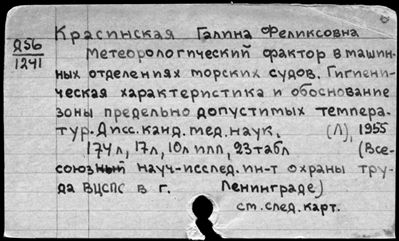 Красинская Галина Феликсовна
Д56
1241
Метеорологический фактор в машин-
ных отделениях морских судов. Гигиени-
ческая характеристика и обоснование
зоны предельно допустимых темпера-
тур. Дисс. канд. мед. наук. (Л), 1955
174 л, 17л, 10л илл, 23 табл (Все-
союзный науч-исслед. ин-т охраны тру-
да ВЦСПС в г. Ленинграде)
см. след. карт.